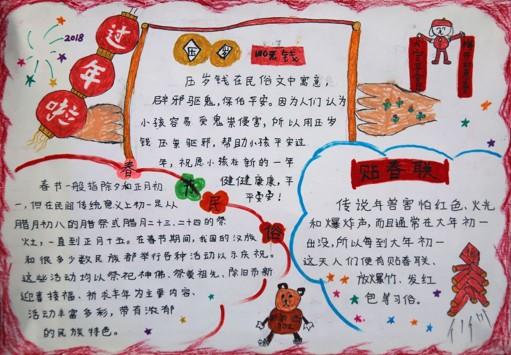 2018
过年啦
压岁
钱
压岁钱在民俗文中寓意，
辟邪驱鬼，保佑平安。因为人们认为
小孩容易受鬼祟侵害，所以用压岁
钱压祟驱邪，帮助小孩平安过
年，祝愿小孩在新的一年
健健康康，平
平安安！
春节民俗
春节一般指除夕和正月初
一，但在民间传统意义上初一是从
腊月初八的腊祭或腊月二十三、二十四的祭
灶，一直到正月十五。在春节期间，我国的汉族
和很多少数民族都举行各种活动以示庆祝。
这些活动均以祭祀神佛、祭奠祖先、除旧布新
迎喜接福、祈求丰年为主要内容、
活动丰富多彩，带有浓郁
的民族特色。
贴春联
传说年兽害怕红色、火光
和爆炸声，而且通常在大年初一
出没，所以每到大年初一
这天人们便有贴春联、
放爆竹、发红
包等习俗。